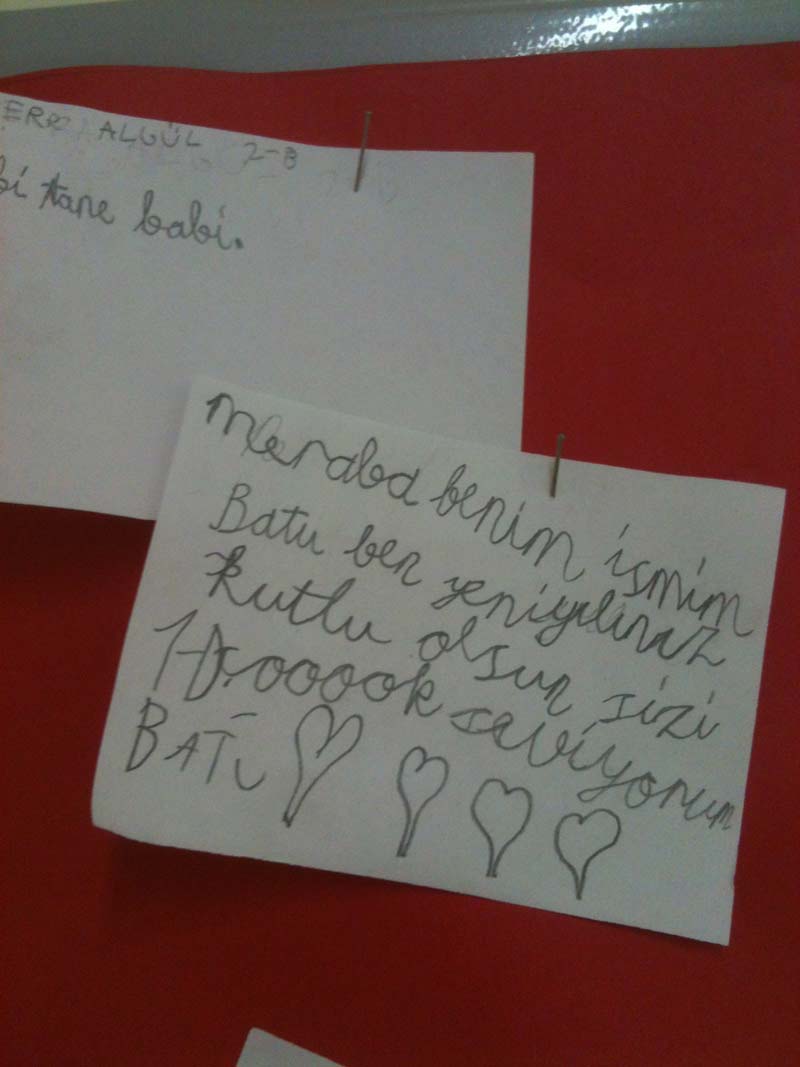 ALGÜL 2-B
bi tane babi.
meraba benim ismim
Batu ben yeniyılınız
kutlu olsun sizi
çooook saviyorum
BATU